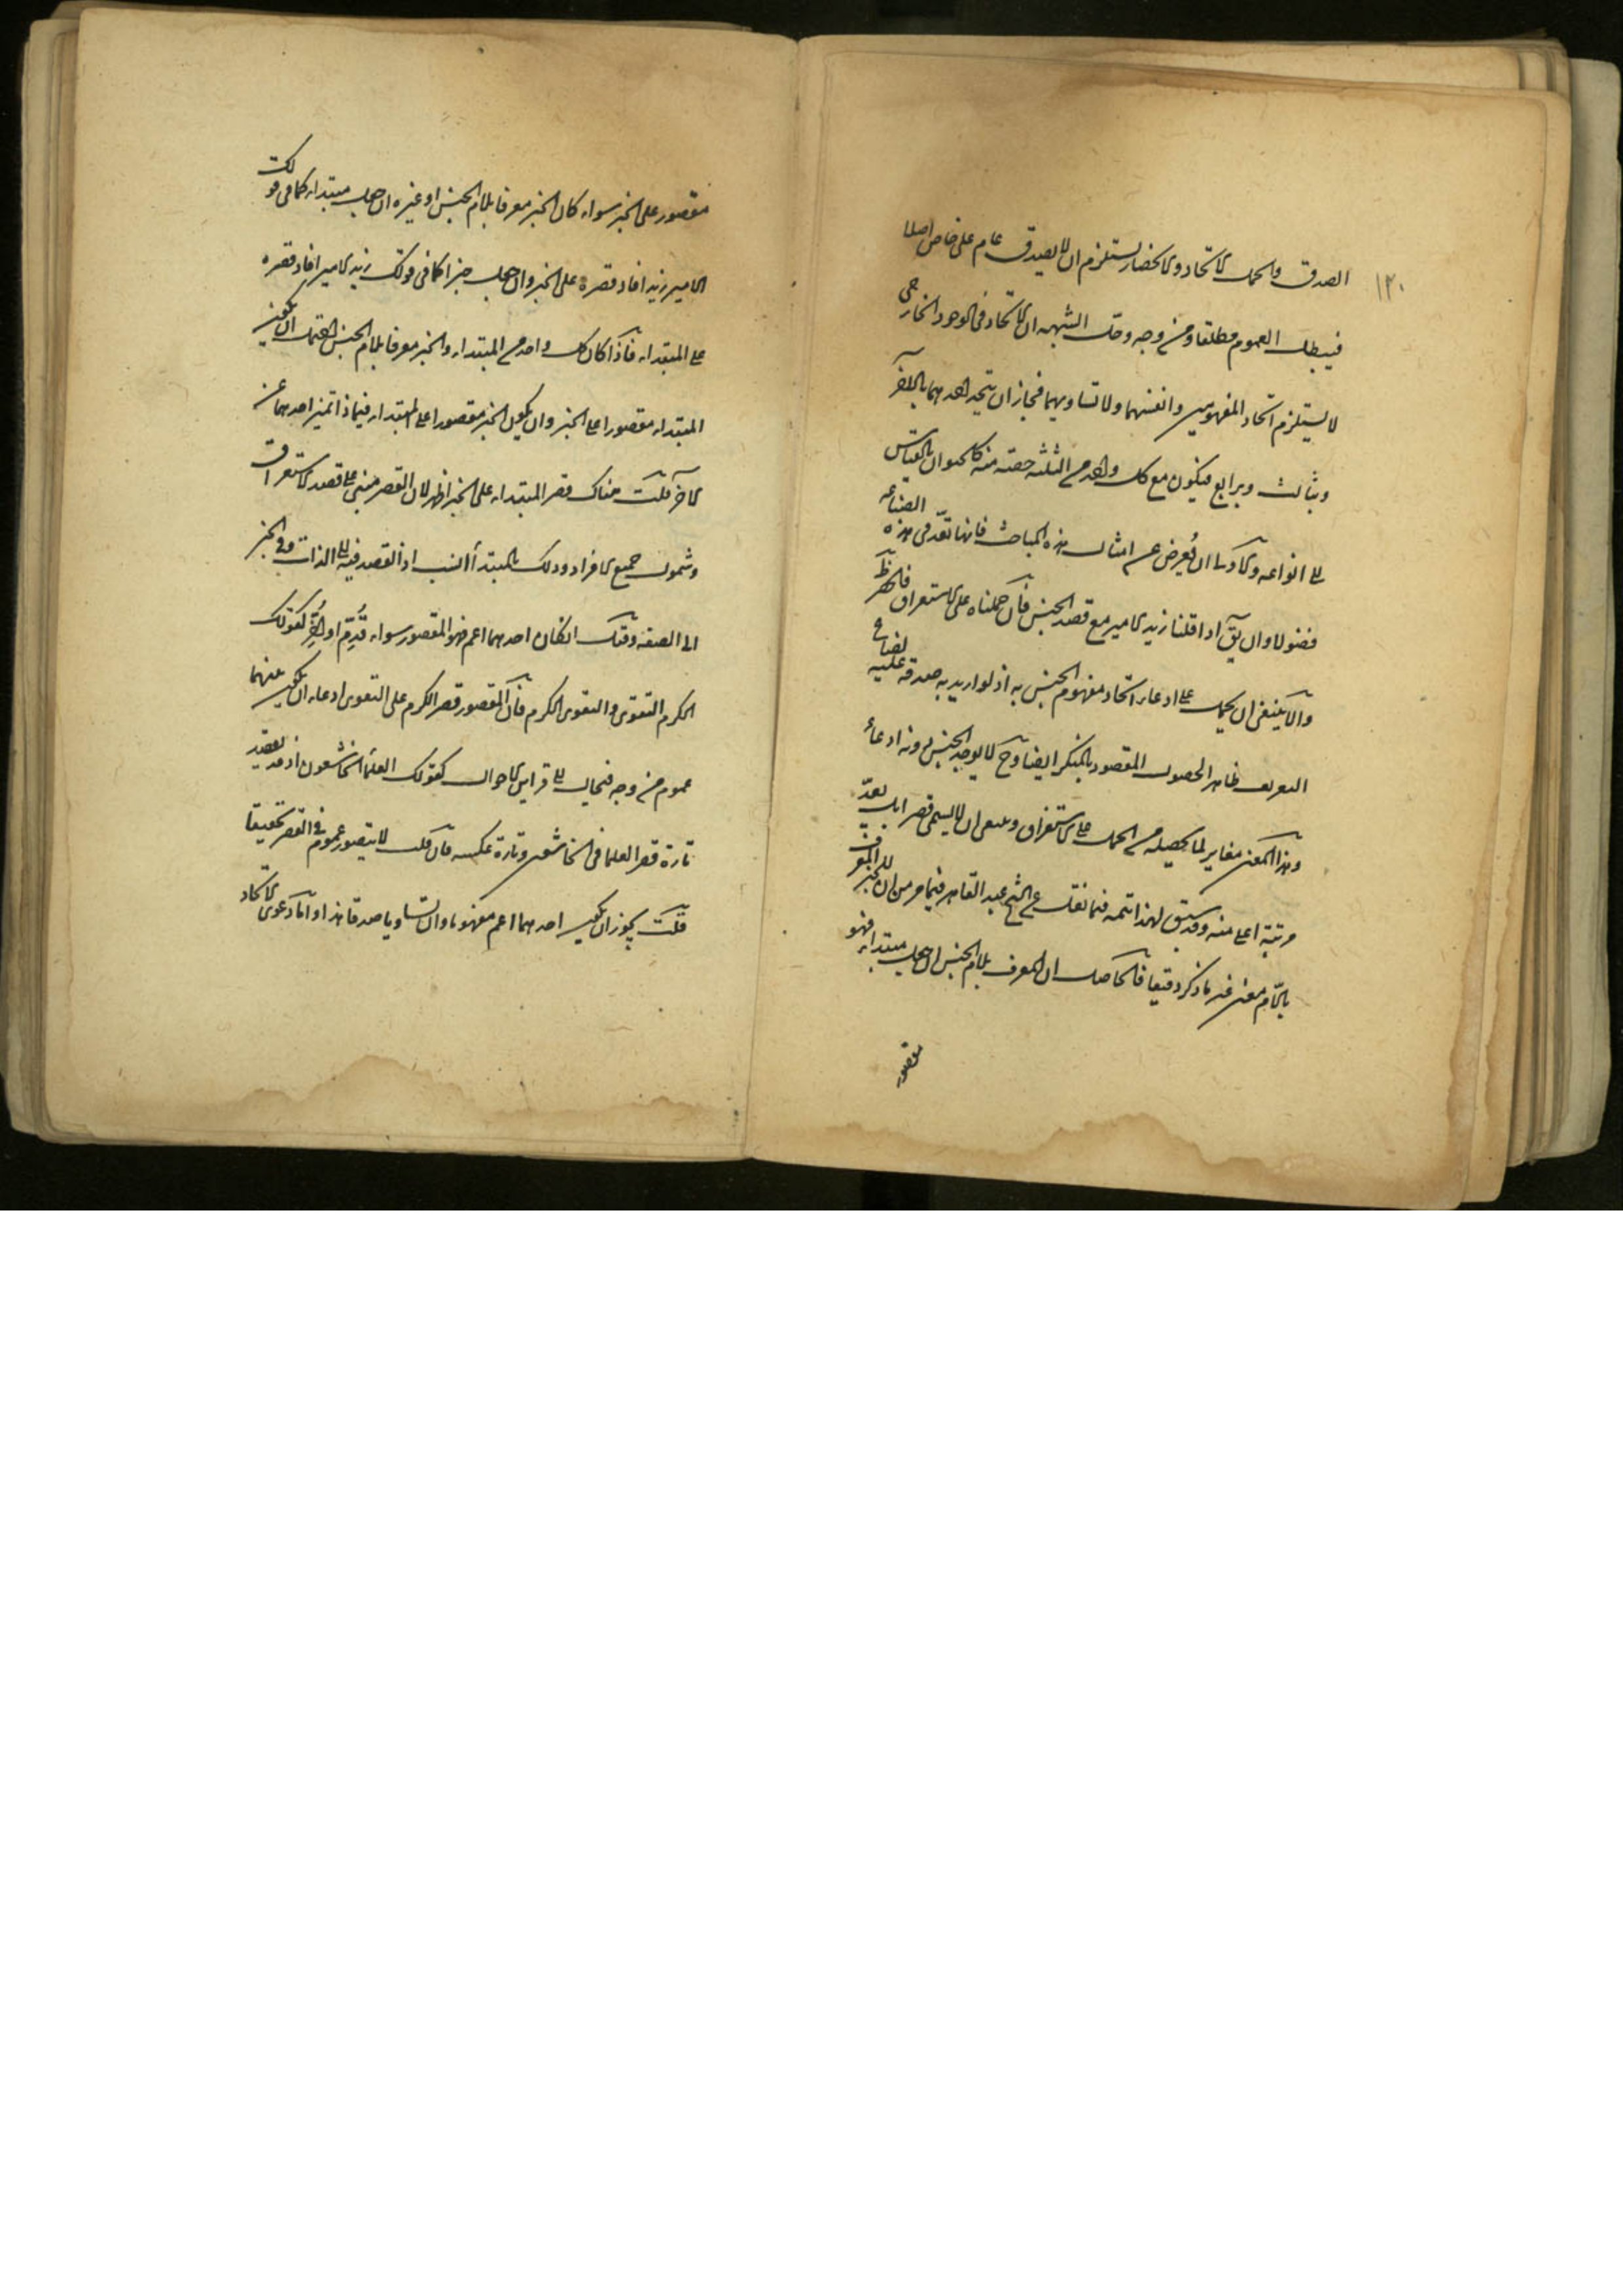 ١٢٠
الصدق والحمل الاتحاد والانحصار يستلزم ان لا يصدق عام على خاص اصلا
فيبطل العموم مطلقا ومن وجه وحل الشبهه ان الاتحاد فى الوجود الخارجى
لا يستلزم اتحاد المفهومين وانفسهما ولا تساويهما فجاز ان يتحد احدهما بالاخر
وبثالث وبرابع فيكون مع كل واحد من الثلثه حصته منه كالحيوان بالقياس
الى انواعه والاولى ان يُعرض عن امثال هذه المباحث فانها تعدّ فى هذه الصناعه
فضولا وان يق اذا قلنا زيد الامير مع قصد الجنس فان حملناه على الاستغراق فالحصر ظ
والا ينبغى ان يحمل على ادعاء اتحاد مفهوم الجنس به اذ لو اريد به صدقه عليه لضاع
التعريف ظاهر الحصول المقصود بالمنكر ايضا وح لا يوجد الجنس بدونه ادعاءً
وهذا المعنى مغاير لما يحصله من الحمل على الاستغراق وينبغى ان لا يسمى قصرا بل يعدّ
مرتبة اعلى منه وقد سبق لهذا تتمه فيما نقل عن الشيخ عبد القاهر فيما مر من ان للخبر المعرف
باللام معنى غير ما ذكر دقيقا فالحاصل ان المعرف بلام الجنس ان جعل مبتداء فهو
مقصور
مقصور على الخبر سواء كان الخبر معرفا بلام الجنس او غيره ان جعل مبتداء كما فى قولك
الامير زيد افاد قصره على الخبر وان جعل خبرا كما فى قولك زيد الامير افاد قصره
على المبتداء فاذا كان كل واحد من المبتداء والخبر معرفا بلام الجنس احتمل ان يكون
المبتداء مقصورا على الخبر وان يكون الخبر مقصورا على المبتداء فبماذا تميز احدهما عن
الاخر قلت هناك قصر المبتداء على الخبر اظهر لان القصر مبنى على قصد الاستغراق
وشمول جميع الافراد وذلك بالمبتدأ انسب اذ القصد فيه الى الذات وفى الخبر
الى الصفه وقيل ان كان احدهما اعم فهو المقصور سواء قُدِّم او اُخِّر كقولك
الكرم التقوى والتقوى الكرم فان المقصور قصر الكرم على التقوى ادعاء ان يكون بينهما
عموم من وجه فيحال الى قراين الاحوال كقولك العلماء الخاشعون اذ قد يقصد
تارة قصر العلما فى الخاشعين وتارة عكسه فان قلت لا يتصور عموم فى القصر تحقيقا
قلت يجوز ان يكون احدهما اعم مفهوما وان تساويا صدقا هذا واما دعوى الاتحاد